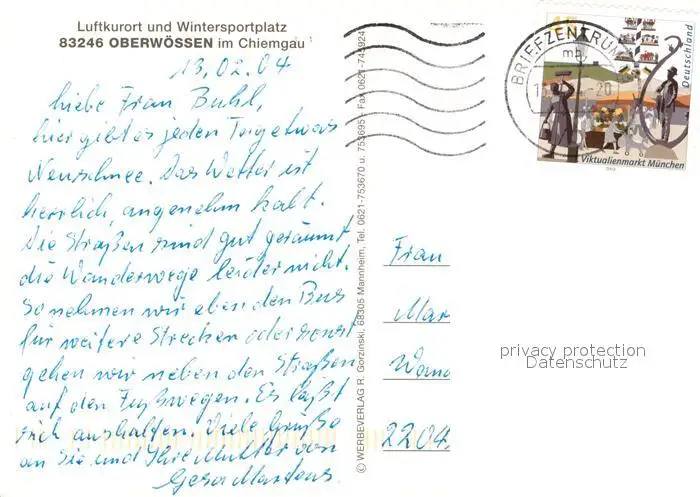 Luftkurort und Wintersportplatz
83246 OBERWÖSSEN im Chiemgau
13.02.04
Liebe Frau Buhl,
hier gibt es jeden Tag etwas
Neuschnee. Das Wetter ist
herrlich, angenehm kalt.
Die Straßen sind gut geräumt
die Wanderwege leider nicht.
So nehmen wir eben den Bus
für weitere Strecken oder sonst
gehen wir neben den Straßen
auf den Fußwegen. Es läßt
sich aushalten. Viele Grüße
an Sie und Ihre Mutter von
Gesa Martens
© WERBEVERLAG R. Gorzinski, 68305 Mannheim, Tel. 0621-753670 u. 753695 - Fax 0621-743924
BRIEFZENTRUM
mb
-20
Deutschland
Viktualienmarkt München
2003
Frau
Mar
2204
privacy protection
Datenschutz